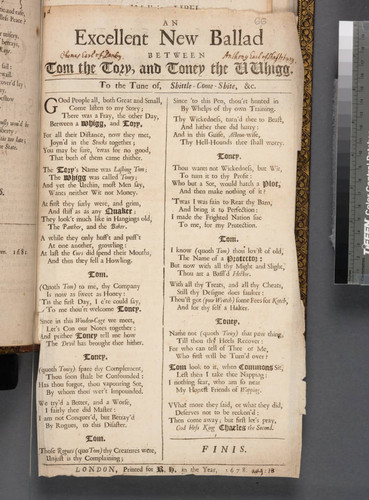 AN
Excellent New Ballad
BETWEEN
Tom the Tory, and Toney the Whigg.
To the Tune of, Shittle-Come-Shite, &c.
GOod People all, both Great and Small,
Come listen to my Story;
There was a Fray, the other Day,
Between a Whigg, and Tory.
For all their Distance, now they met,
Joyn'd in the Stocks together;
You may be sure, 'twas for no good,
That both of them came thither.
The Tory's Name was Lasting Tom;
The Whigg was called Toney;
And yet the Urchin, most Men say,
Wants neither Wit nor Money.
At first they surly were, and grim,
And stiff as as any Quaker;
They look't much like in Hangings old,
The Panther, and the Baker.
A while they only huff't and puff't
At one another, growling;
At last the Curs did spend their Mouths,
And thus they fell a Howling.
Tom.
(Quoth Tom) to me, thy Company
Is now as sweet as Honey:
'Tis the first Day, I e're could say,
To me thou'rt welcome Toney.
Since in this Window-Case we meet,
Let's Con our Notes together:
And neither Toney tell me how
The Devil has brought thee hither.
Toney.
(Quoth Toney) spare thy Complement,
Thou soon shalt be Confounded:
Has thou forgot, thou vapouring Sot,
By whom thou wer't Impounded.
We try'd a Better, and a Worse,
I fairly thee did Master:
I am not Conquer'd, but Betray'd
By Rogues, to this Disaster.
Tom.
Those Rogues (quo Tom) thy Creatures were,
Unjust is thy Complaining;
Since 'to this Pen, thou'rt hunted in
By Whelps of thy own Training.
Thy Wickedness, turn'd thee to Beast,
And hither thee did hurry:
And in this Guise,
Thy Hell-Hounds thee shall worry.
Toney.
Thou wants not Wickedness, but Wit,
To turn it to thy Profit:
Who but a Sot, would hatch a Plot,
And then make nothing of it?
'Twas I was fain to Rear thy Barn,
And bring it to Perfection:
I made the Frighted Nation sue
To me, for my Protection.
Tom.
I know (quoth Tom) thou lov'st of old,
The Name of a Protector:
But now with all thy Might and Slight,
Thou art a Baffl'd Hector.
With all thy Treats, and all thy Cheats,
Still thy Designe does faulter:
Thou'st got (poor Wretch) some Fees for Ketch,
And for thy self a Halter.
Toney.
Name not (quoth Toney) that pure thing,
Till thou thy Heels Recover:
For who can tell of Thee or Me,
Who first will be Turn'd over?
Tom look to it, when Commons Sit,
Lest thou I take thee Napping:
I nothing fear, who am so near
My Highest Friends of Wapping.
What more they said, or what they did,
Deserves not to be reckon'd;
Then come away; but first let's pray,
God bless King Charles the Second.
FINIS.
LONDON, Printed for R. H. in the Year, 1678